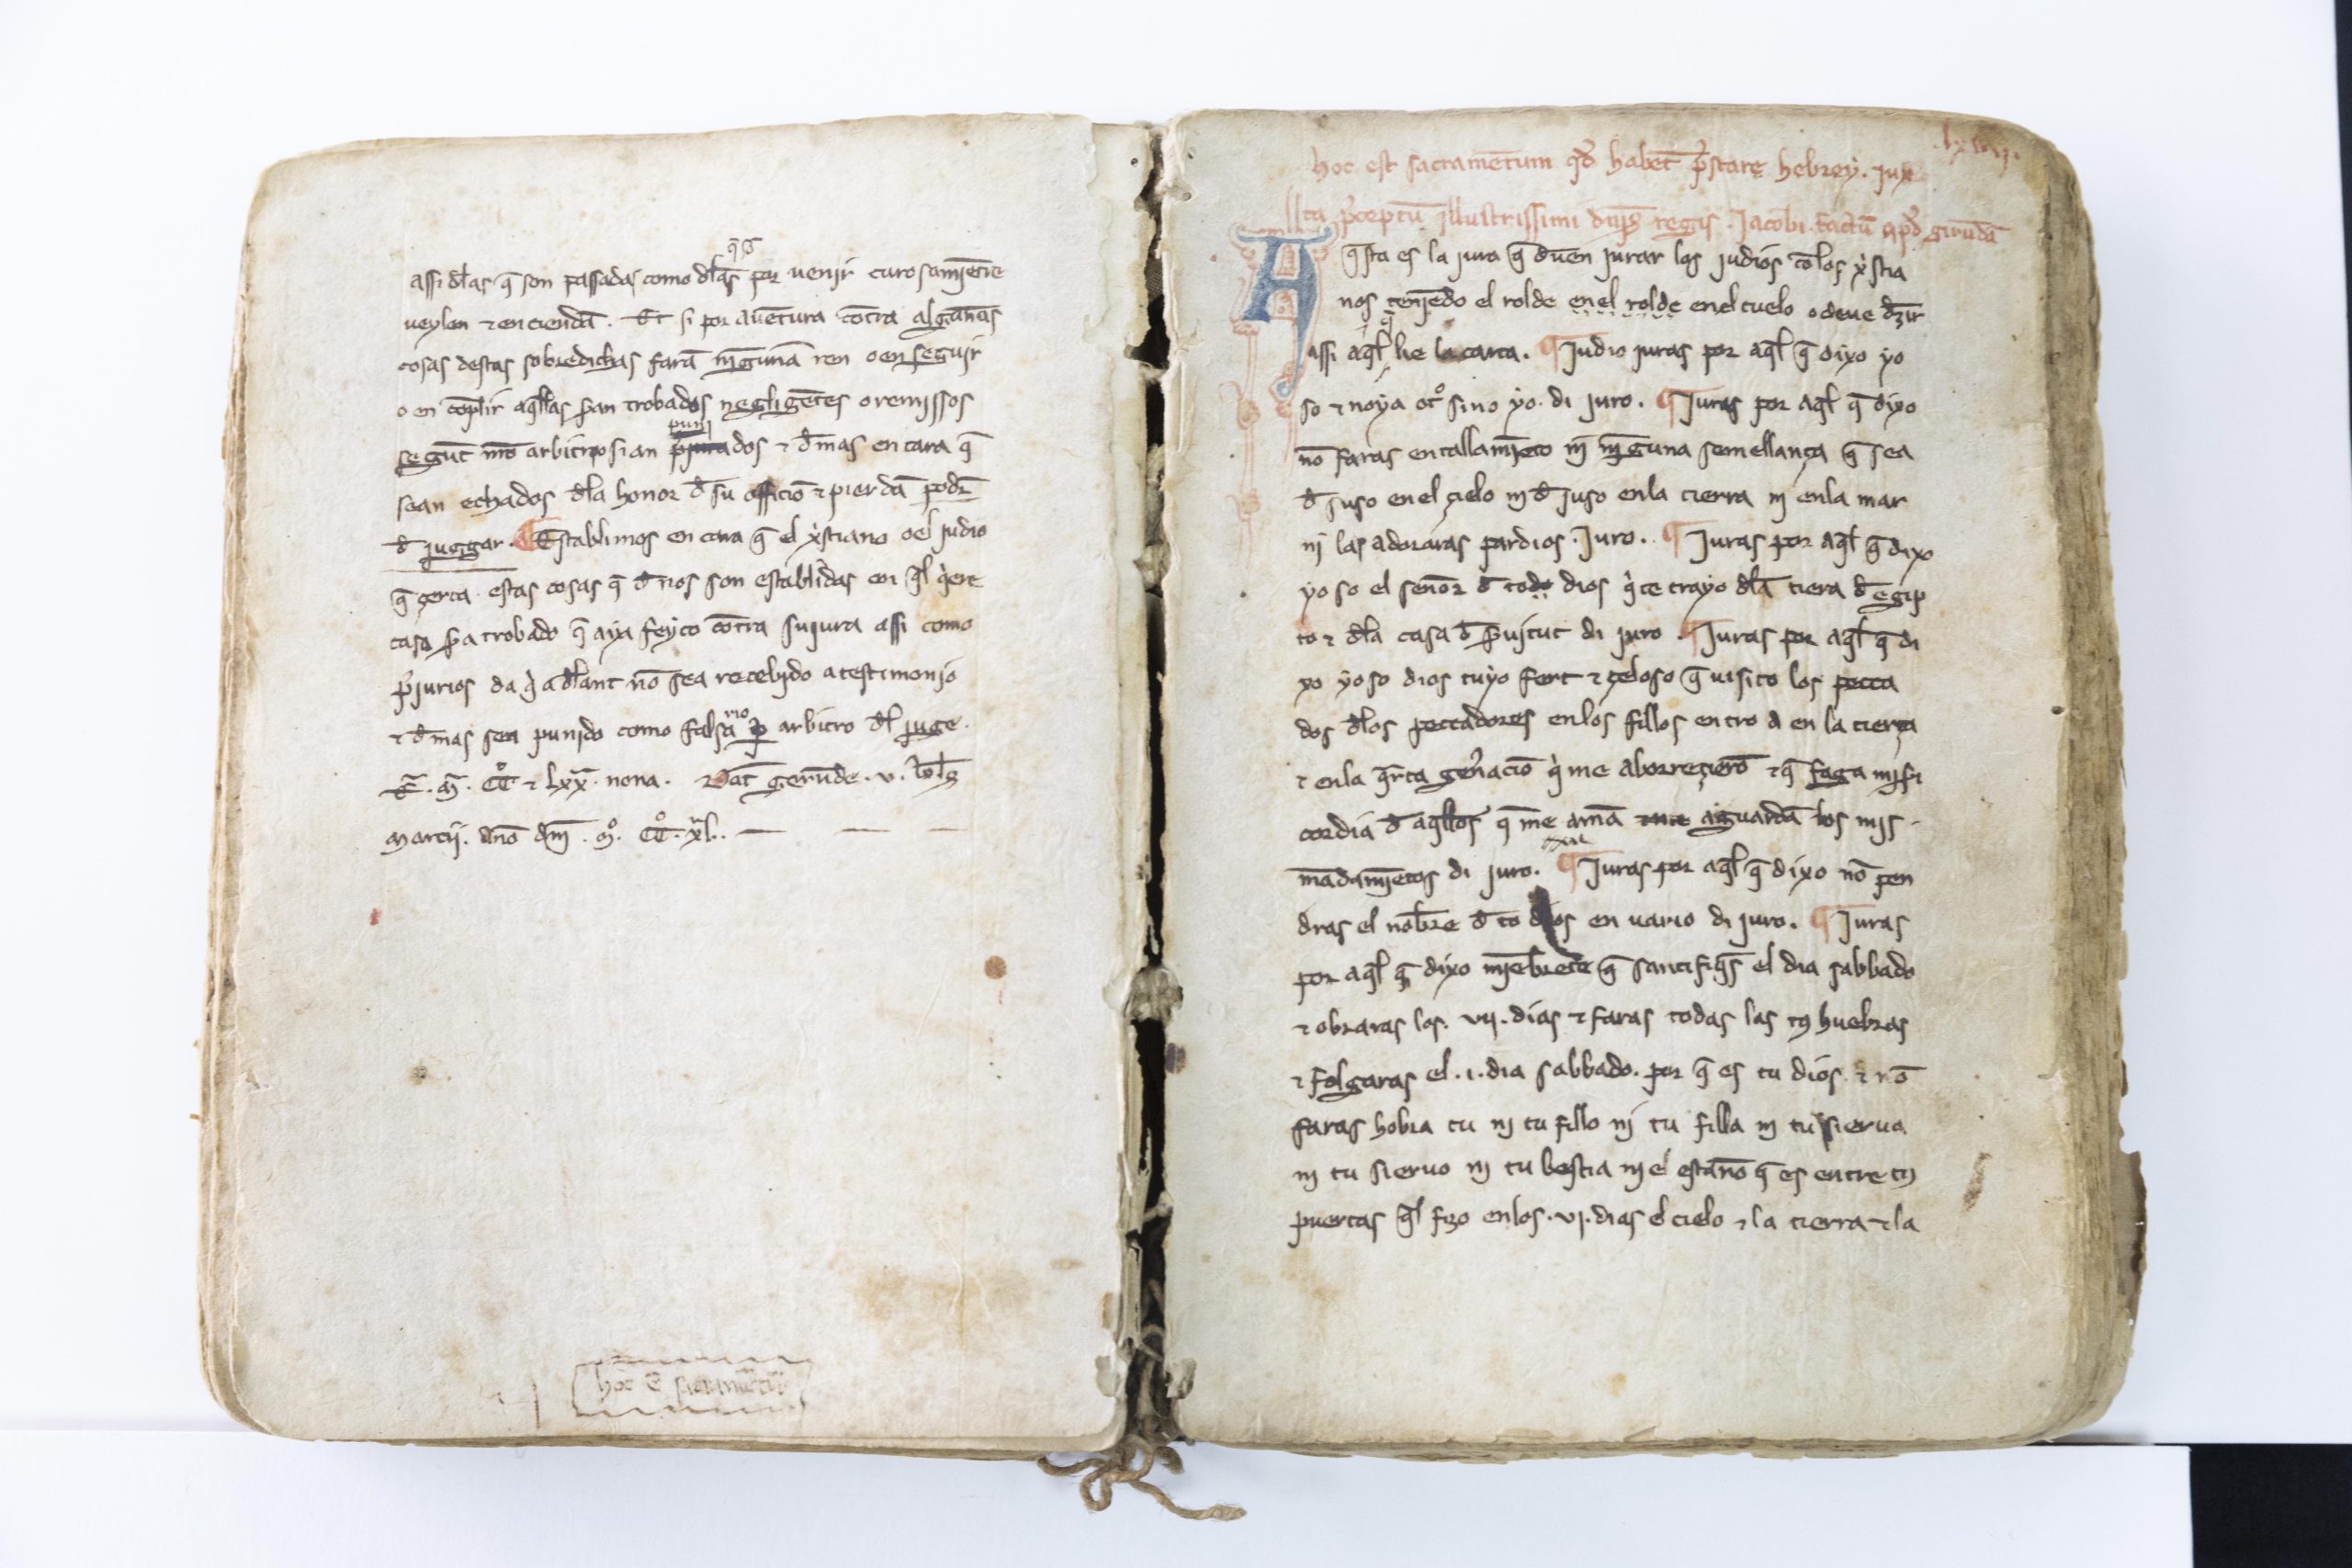 assi dl̃as q̄ son passadas como dl̃as q̄ s̄ por uenir curosamient̄re
ueylen ⁊ enciendā. Et si por auētura cōtra algunas
cosas destas sobredichas farā nīguna ren o en seguir
o en cōplir aq̄llas s̄an trobados negligētes o remissos
segūt nr̄o arbitrio sian punidos ⁊ d̄ mas encara q̄
sean echados dl̃a honor d̄ su officio ⁊ pierdā poder
d̄ iutgar. ¶ Establimos encara q̄ el xp̄stiano o el judio
q̄ çerca estas cosas q̄ d̄ nos son establidas en q̄l q̇ere
casa s̄a trobado q̄ aya feyto cōtra su jura assi como
p̄jurios da q̇ adl̃ant nō sea recebido a testimonio
⁊ d̄ mas sea punido como falsario p̱ arbitro dl̃ juge.
E.ͣ M.ͣ CC ⁊ lxx.ͣ nona. Dat̄ Gerunde. v. kl̃s
Marcij. Anō dn̄i. M.º CC.º xl.
hoc ē sacramētū
lxvi.
hoc est sacramentum qd̄ habēt p̄stare hebrey. jux
ta p̄ceptū illustrissimi dn̄i regis. Jacobi. factū apd̄ girūdā
Aq̄sta es la jura q̄ deuen jurar los judios cō los xp̄stia
nos teniēdo el rolde en el rolde en el cuelo o deue dz̄ir
assi aq̄l q̄ lie la carta. ¶ Judio juras por aq̄l q̄ dixo yo
so ⁊ no ya otro sino yo. di juro. ¶ Juras por aq̄l q̄ dixo
nō faras entallamiēto ni nīguna semellança q̄ sea
d̄ suso en el çielo ni d̄ juso en la tierra ni en la mar
ni las adoraras par dios. Juro. ¶ Juras por aq̄l q̄ dixo
yo so el senȳor d̄ todo dios q̇ te trayo dl̃a tiera d̄ egip
to ⁊ dl̃a casa d̄ s̄uitut di juro. ¶ Juras por aq̄l q̄ di
xo yo so dios tuyo fort ⁊ çeloso q̄ uisito los pecca
dos dl̃os peccadores en los fillos entro a en la tierça
⁊ en la q̄rta gen̄aciō q̇ me aborreçierō ⁊ q̄ faga misi
cordia d̄ aq̄llos q̄ me amā aguardā los mis
mādamiētos di juro. ¶ Juras por aq̄l q̄ dixo nō pen
dras el nōbre d̄ to dios en uario di juro. ¶ Juras
por aq̄l q̄ dixo miēbrete q̄ santifiq̄s el dia sabbado
⁊ obraras los. vij. dias ⁊ faras todas las tꝯ huebras
⁊ folgaras el. i. dia sabbado. por q̄ es tu dios. ⁊ nō
faras hobra tu ni tu fillo ni tu filla ni tu sierua
ni tu sieruo ni tu bestia ni el estranō q̄ es entre tꝯ
puertas q̄l fizo en los. vi. dias el cielo ⁊ la tierra ⁊ la